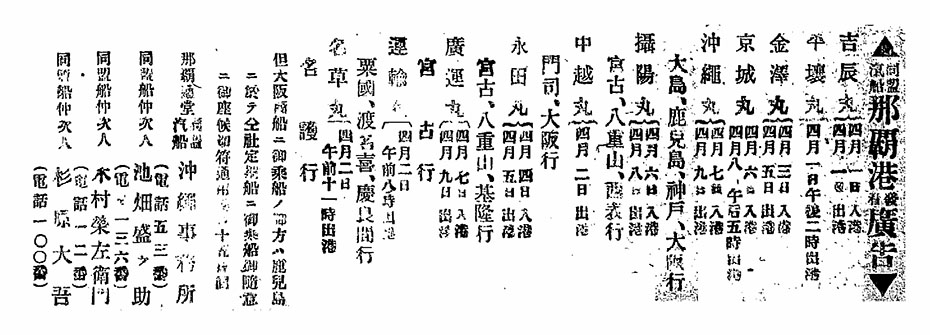 ▲同盟汽船那覇港発着廣告▼
吉辰丸 四月一日入港 四月 日出港
平壤丸 四月一日午後二時出港
金澤丸 四月三日入港 四月五日出港
京城丸 四月八、午后五時出港
沖繩丸 四月七日入港 四月九日出港
大島、鹿兒島、神戸、大阪行
攝陽丸 四月六日入港 四月八日出港
宮古、八重山、西表行
中越丸 四月二日出港
門司、大阪行
永田丸 四月四日入港 四月五日出港
宮古、八重山、基隆行
廣運丸 四月七日入港 四月九日出港
宮古行
運輸丸 四月二日 午後八時出港
粟國、渡名喜、慶良間行
名草丸 四月二日 午前十一時出港
名護行
但大阪 船ニ御乗船ノ御方ハ鹿兒島
ニ於テ全社定 船ニ御乗船御隨意
ニ御座候切符通用 十五 間
那覇通堂汽船同盟 沖繩事務所
(電話五三番)
同盟船仲次人 池畑盛之助
(電話一三六番)
同盟船仲次人 木村榮左衛門
(電話一二番)
同盟船仲次人 杉原大吾
(電話一〇〇番)